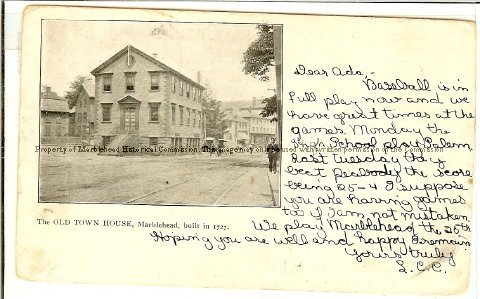 Dear Ada,-
Baseball is in
full play now and we
have great times at the
games. Monday the
High School play Salem.
Last Tuesday they
beat Peabody the score
being 25-4 I suppose
you are having games
too if I am not mistaken
We play Marblehead the 25th
Hoping you are well and happy I remain
Yours truly
L. C. C.
Property of Marblehead Historical Commission. This imagery can be used with written permission of the Commission
The OLD TOWN HOUSE, Marblehead, built in 1727.